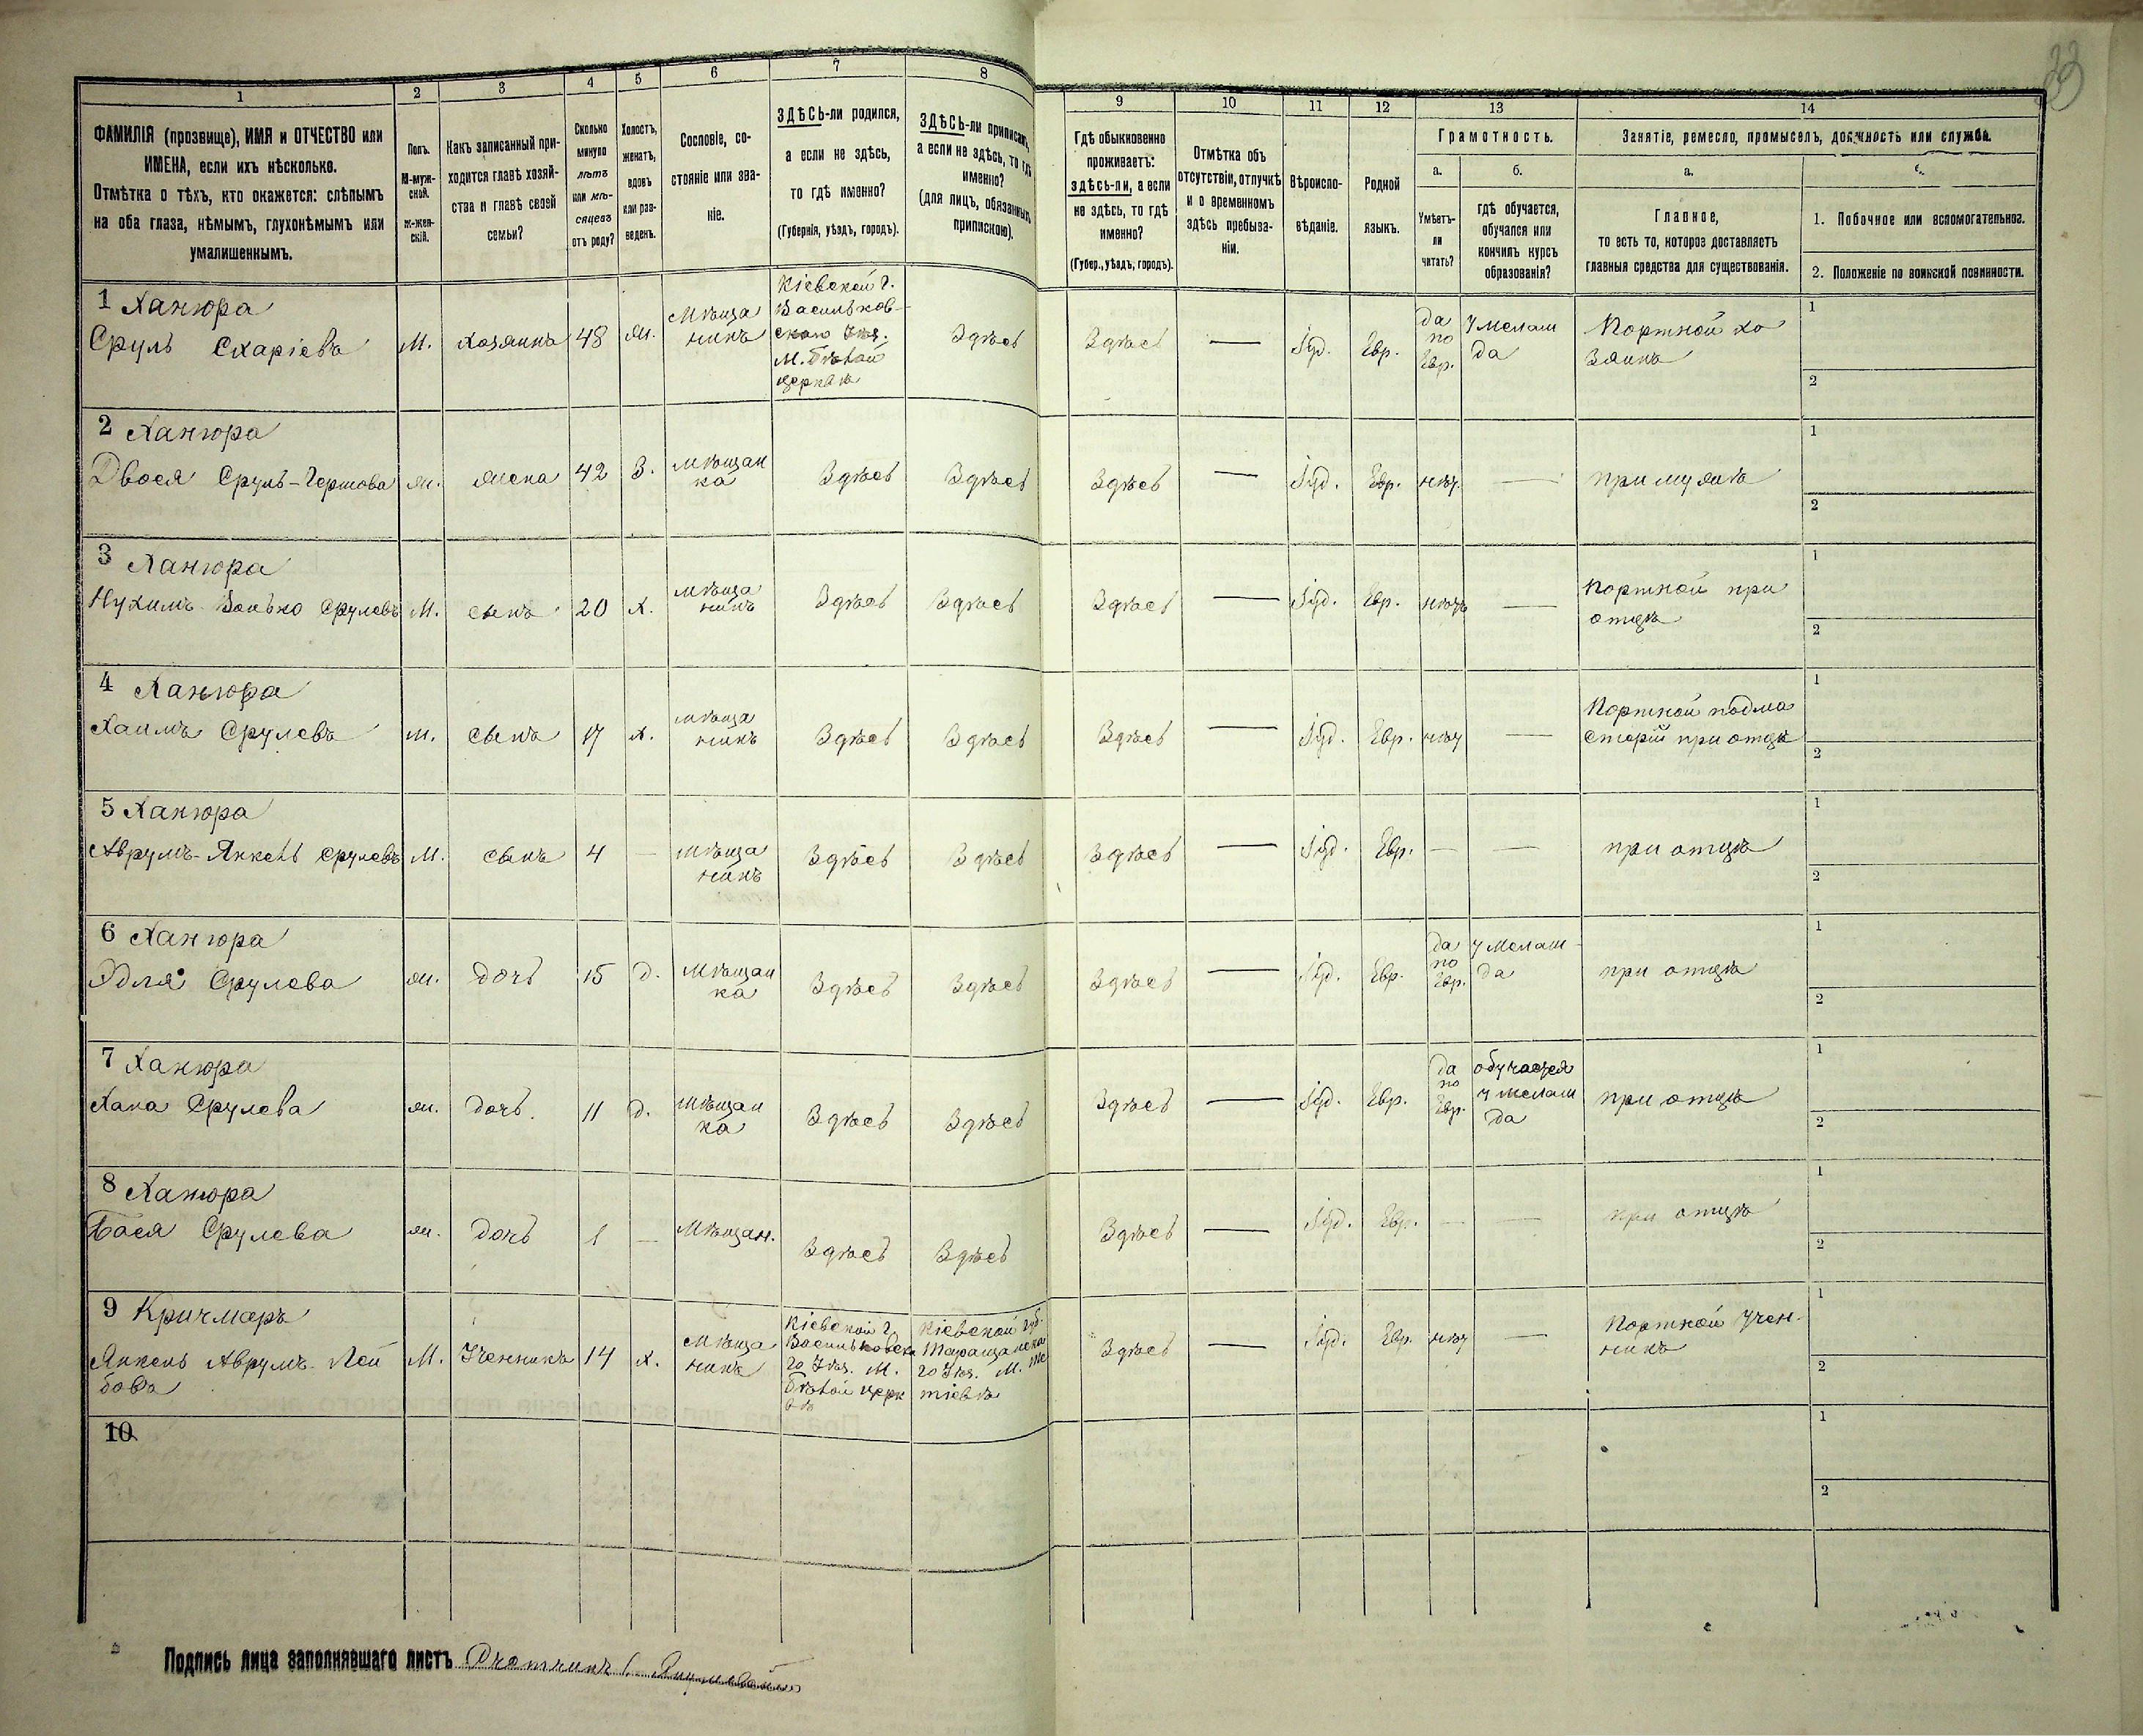 33
1
2
3
4
5
6
7
8
9
10
11
12
13
14
ФАМИЛІЯ (прозвище), ИМЯ и ОТЧЕСТВО или
ИМЕНА, если ихъ нѣсколько.
Отмѣтка о тѣхъ, кто окажется: слѣпымъ
на оба глаза, нѣмымъ, глухонѣмымъ или
умалишеннымъ.
Полъ.
М-муж-
ской.
ж-жен-
скій.
Какъ записанный при-
ходится главѣ хозяй-
ства и главѣ своей
семьи?
Сколько
минуло
лѣтъ
или мѣ-
сяцевъ
отъ роду?
Холостъ,
женатъ,
вдовъ
или раз-
веденъ.
Сословіе, со-
стояніе или зва-
ніе.
ЗДѢСЬ-ли родился,
а если не здѣсь,
то гдѣ именно?
(Губернія, уѣздъ, городъ).
ЗДѢСЬ-ли приписанъ,
а если не здѣсь, то гдѣ
именно?
(для лицъ, обязанныхъ
припискою).
Гдѣ обыкновенно
проживаетъ:
здѣсь-ли, а если
не здѣсь, то гдѣ
именно?
(Губер., уѣздъ, городъ).
Отмѣтка объ
отсутствіи, отлучкѣ
и о временномъ
здѣсь пребыва-
ніи.
Вѣроиспо-
вѣданіе.
Родной
языкъ.
Грамотность.
а.
Умѣетъ-
ли
читать?
б.
гдѣ обучается,
обучался или
кончилъ курсъ
образованія?
Занятіе, ремесло, промыселъ, должность или служба.
а.
Главное,
то есть то, которое доставляетъ
главныя средства для существованія.
1. Побочное или вспомогательное.
2. Положеніе по воинской повинности.
1 Ханюра
Сруль Схаріевъ
М.
хозяинъ
48
ж.
Мѣща
нинъ
Кіевской г.
Васильков-
скаго Уѣз.
М. Бѣлой
церкви
Здѣсь
Здѣсь
—
Іуд.
Евр.
да
по
Евр.
у мелам
да
Портной хо
зяинъ
1
2
2 Ханюра
Двося Сруль-Гершова
ж.
жена
42
З.
мѣщан
ка
Здѣсь
Здѣсь
Здѣсь
—
Іуд.
Евр.
нѣт
—
при мужѣ
1
2
3 Ханюра
Нухимъ Волько Срулевъ
М.
сынъ
20
х.
мѣща
нинъ
Здѣсь
Здѣсь
Здѣсь
—
Іуд.
Евр.
нѣтъ
—
Портной при
отцѣ
1
2
4 Ханюра
Хаимъ Срулевъ
м.
сынъ
17
х.
мѣща
нинъ
Здѣсь
Здѣсь
Здѣсь
—
Іуд.
Евр.
нѣт
—
Портной подма
старій при отцѣ
1
2
5 Ханюра
Аврумъ-Янкель Срулевъ
М.
сынъ
4
—
мѣща
нинъ
Здѣсь
Здѣсь
Здѣсь
—
Іуд.
Евр.
—
—
при отцѣ
1
2
6 Ханюра
Эдля Срулева
ж.
дочь
15
д.
Мѣщан
ка
Здѣсь
Здѣсь
Здѣсь
—
Іуд.
Евр.
да
по
Евр.
у мелам
да
при отцѣ
1
2
7 Ханюра
Хана Срулева
ж.
дочь.
11
д.
мѣщан
ка
Здѣсь
Здѣсь
Здѣсь
—
Іуд.
Евр.
да
по
Евр.
обучается
у мелам
да
при отцѣ
1
2
8 Ханюра
Бася Срулева
ж.
дочь
1
—
Мѣщан.
Здѣсь
Здѣсь
Здѣсь
—
Іуд.
Евр.
—
—
при отцѣ
1
2
9 Кричмаръ
Янкель Аврумъ Лей
бовъ
М.
Ученникъ
14
х.
Мѣща
нинъ
Кіевской г.
Васильковска
го Уѣз. М.
Бѣлой церк
вѣ
Кіевской губ.
Таращанска
го Уѣз. М. Те
тіевѣ
Здѣсь
—
Іуд.
Евр.
нѣт
—
Портной Учен-
никъ
1
2
10
1
2
Подпись лица заполнявшаго листъ Счетчикъ